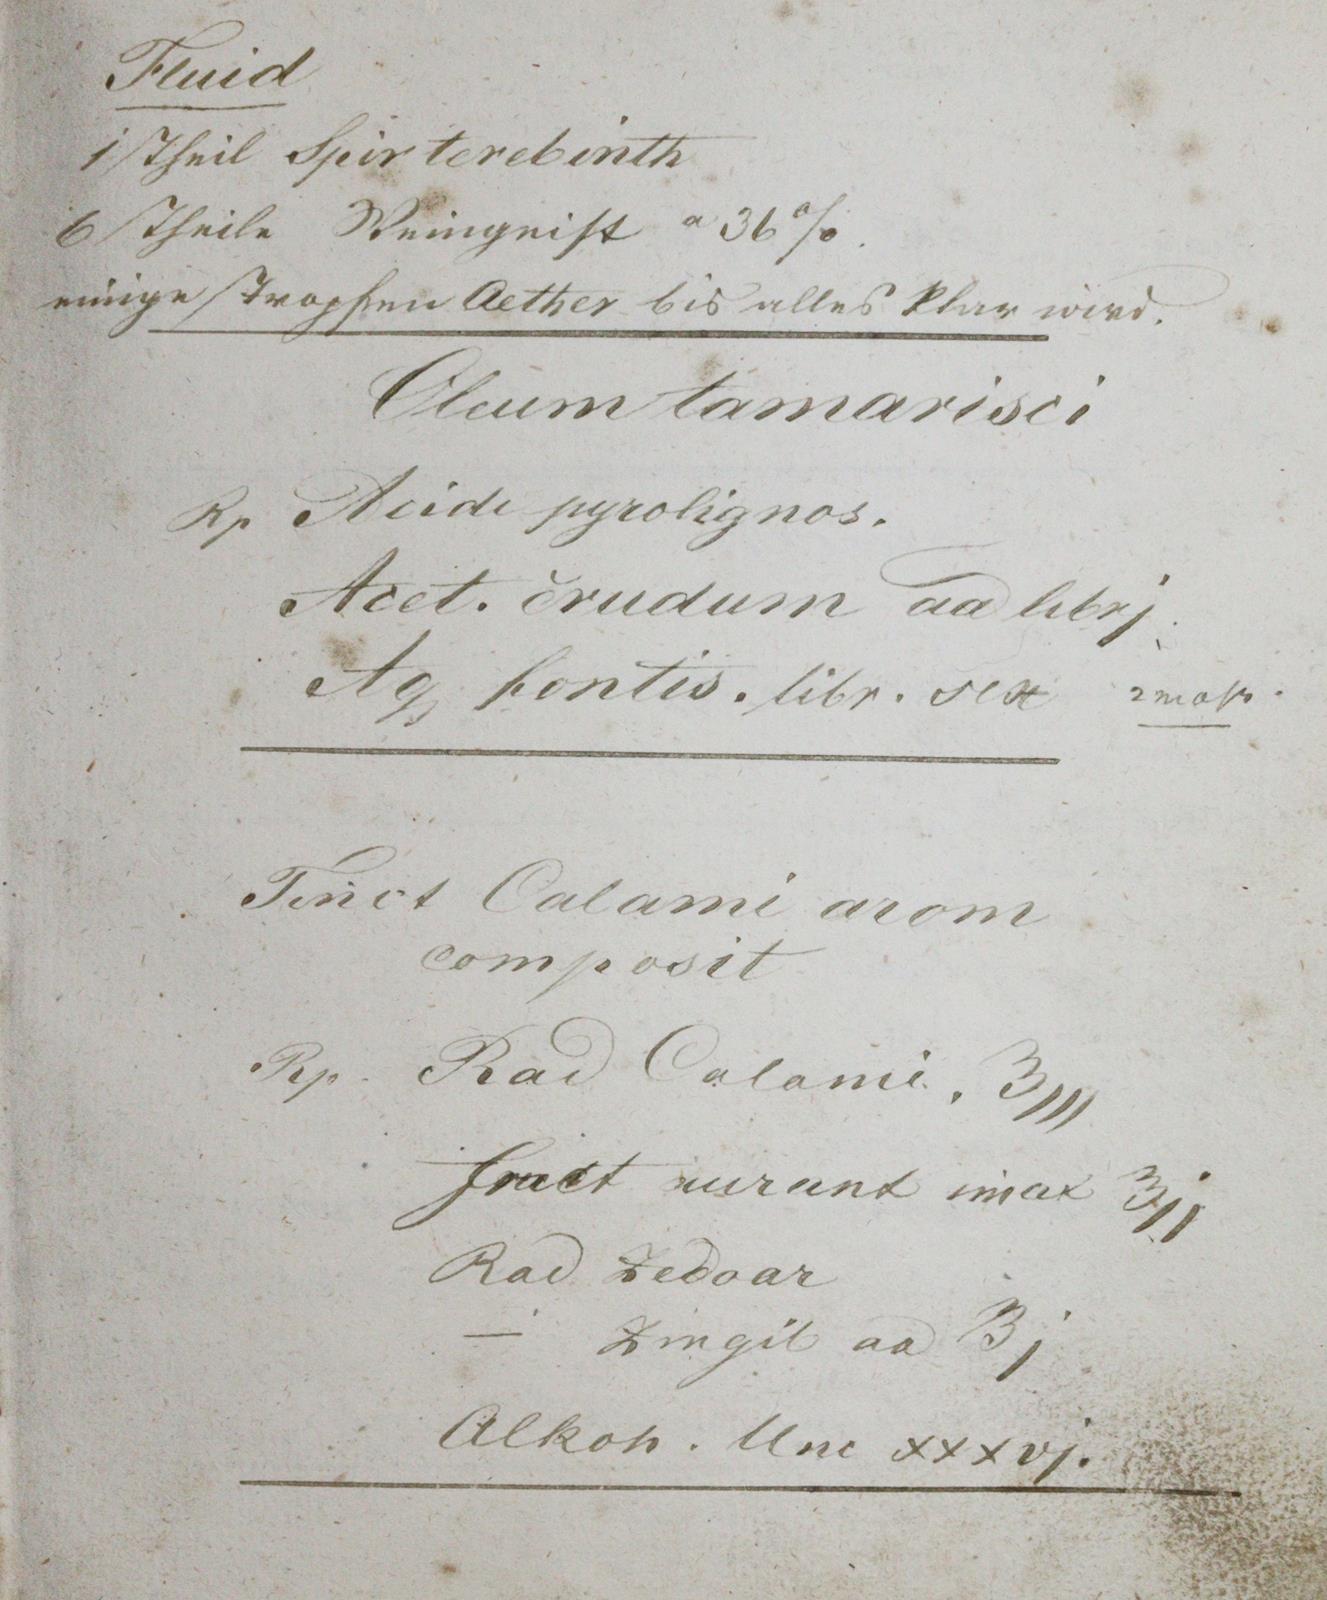 Fluid
1 Theil Spir terebinth
6 Theile Weingeist a 36 %.
einige Tropfen Aether bis alles klar wird.
Oleum tamarisci
Rp Acidi pyrolignos.
Acet. crudum aa librj.
Aq fontis. libr. sex
Tinct Calami arom
composit
Rp. Rad Calami. ℥III
fruct aurant imat ℥jj
Rad Zedoar
— Zingib aa ℥j
Alkoh. Unc xxxvj.